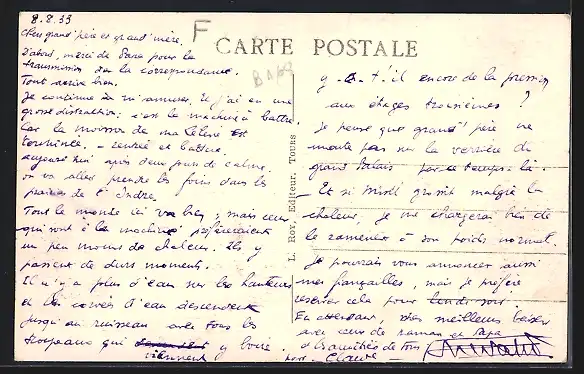 8.8.33
Chers grand'père et grand'mère,
D'abord, merci de Papa pour la
transmission de la correspondance.
Tout arrive bien.
Je continue à m'amuser. Et j'ai eu une
grosse distraction : c'est la machine à battre.
Car la moisson de ma est
terminée. - rentrée et battue.
aujourd'hui après deux jours de calme,
on va aller prendre les foins dans les
prairies de l'Indre.
Tout le monde ici va bien ; mais ceux
qui sont à la machine préfèreraient
un peu moins de chaleur. Ils y
passent de durs moments.
Il n'y a plus d'eau sur les hauteurs
et les corvées d'eau descendent
jusqu'au ruisseau avec tous les
troupeaux qui viennent y boire.
F
CARTE POSTALE
L. Roy, Editeur, Tours
y a-t'il encore de la pression
aux étages troisièmes ?
Je pense que grand'père ne
monte pas sur la verrière du
grand Palais par ce temps-là.
Et si Mirdi grossit malgré la
chaleur, je me chargerai bien de
le ramener à son poids normal.
Je pourrais vous annoncer aussi
mes fiançailles, mais je préfère
réserver cela pour
En attendant, des meilleurs baisers
avec ceux de maman et Papa
et amitiés de tous
Claude